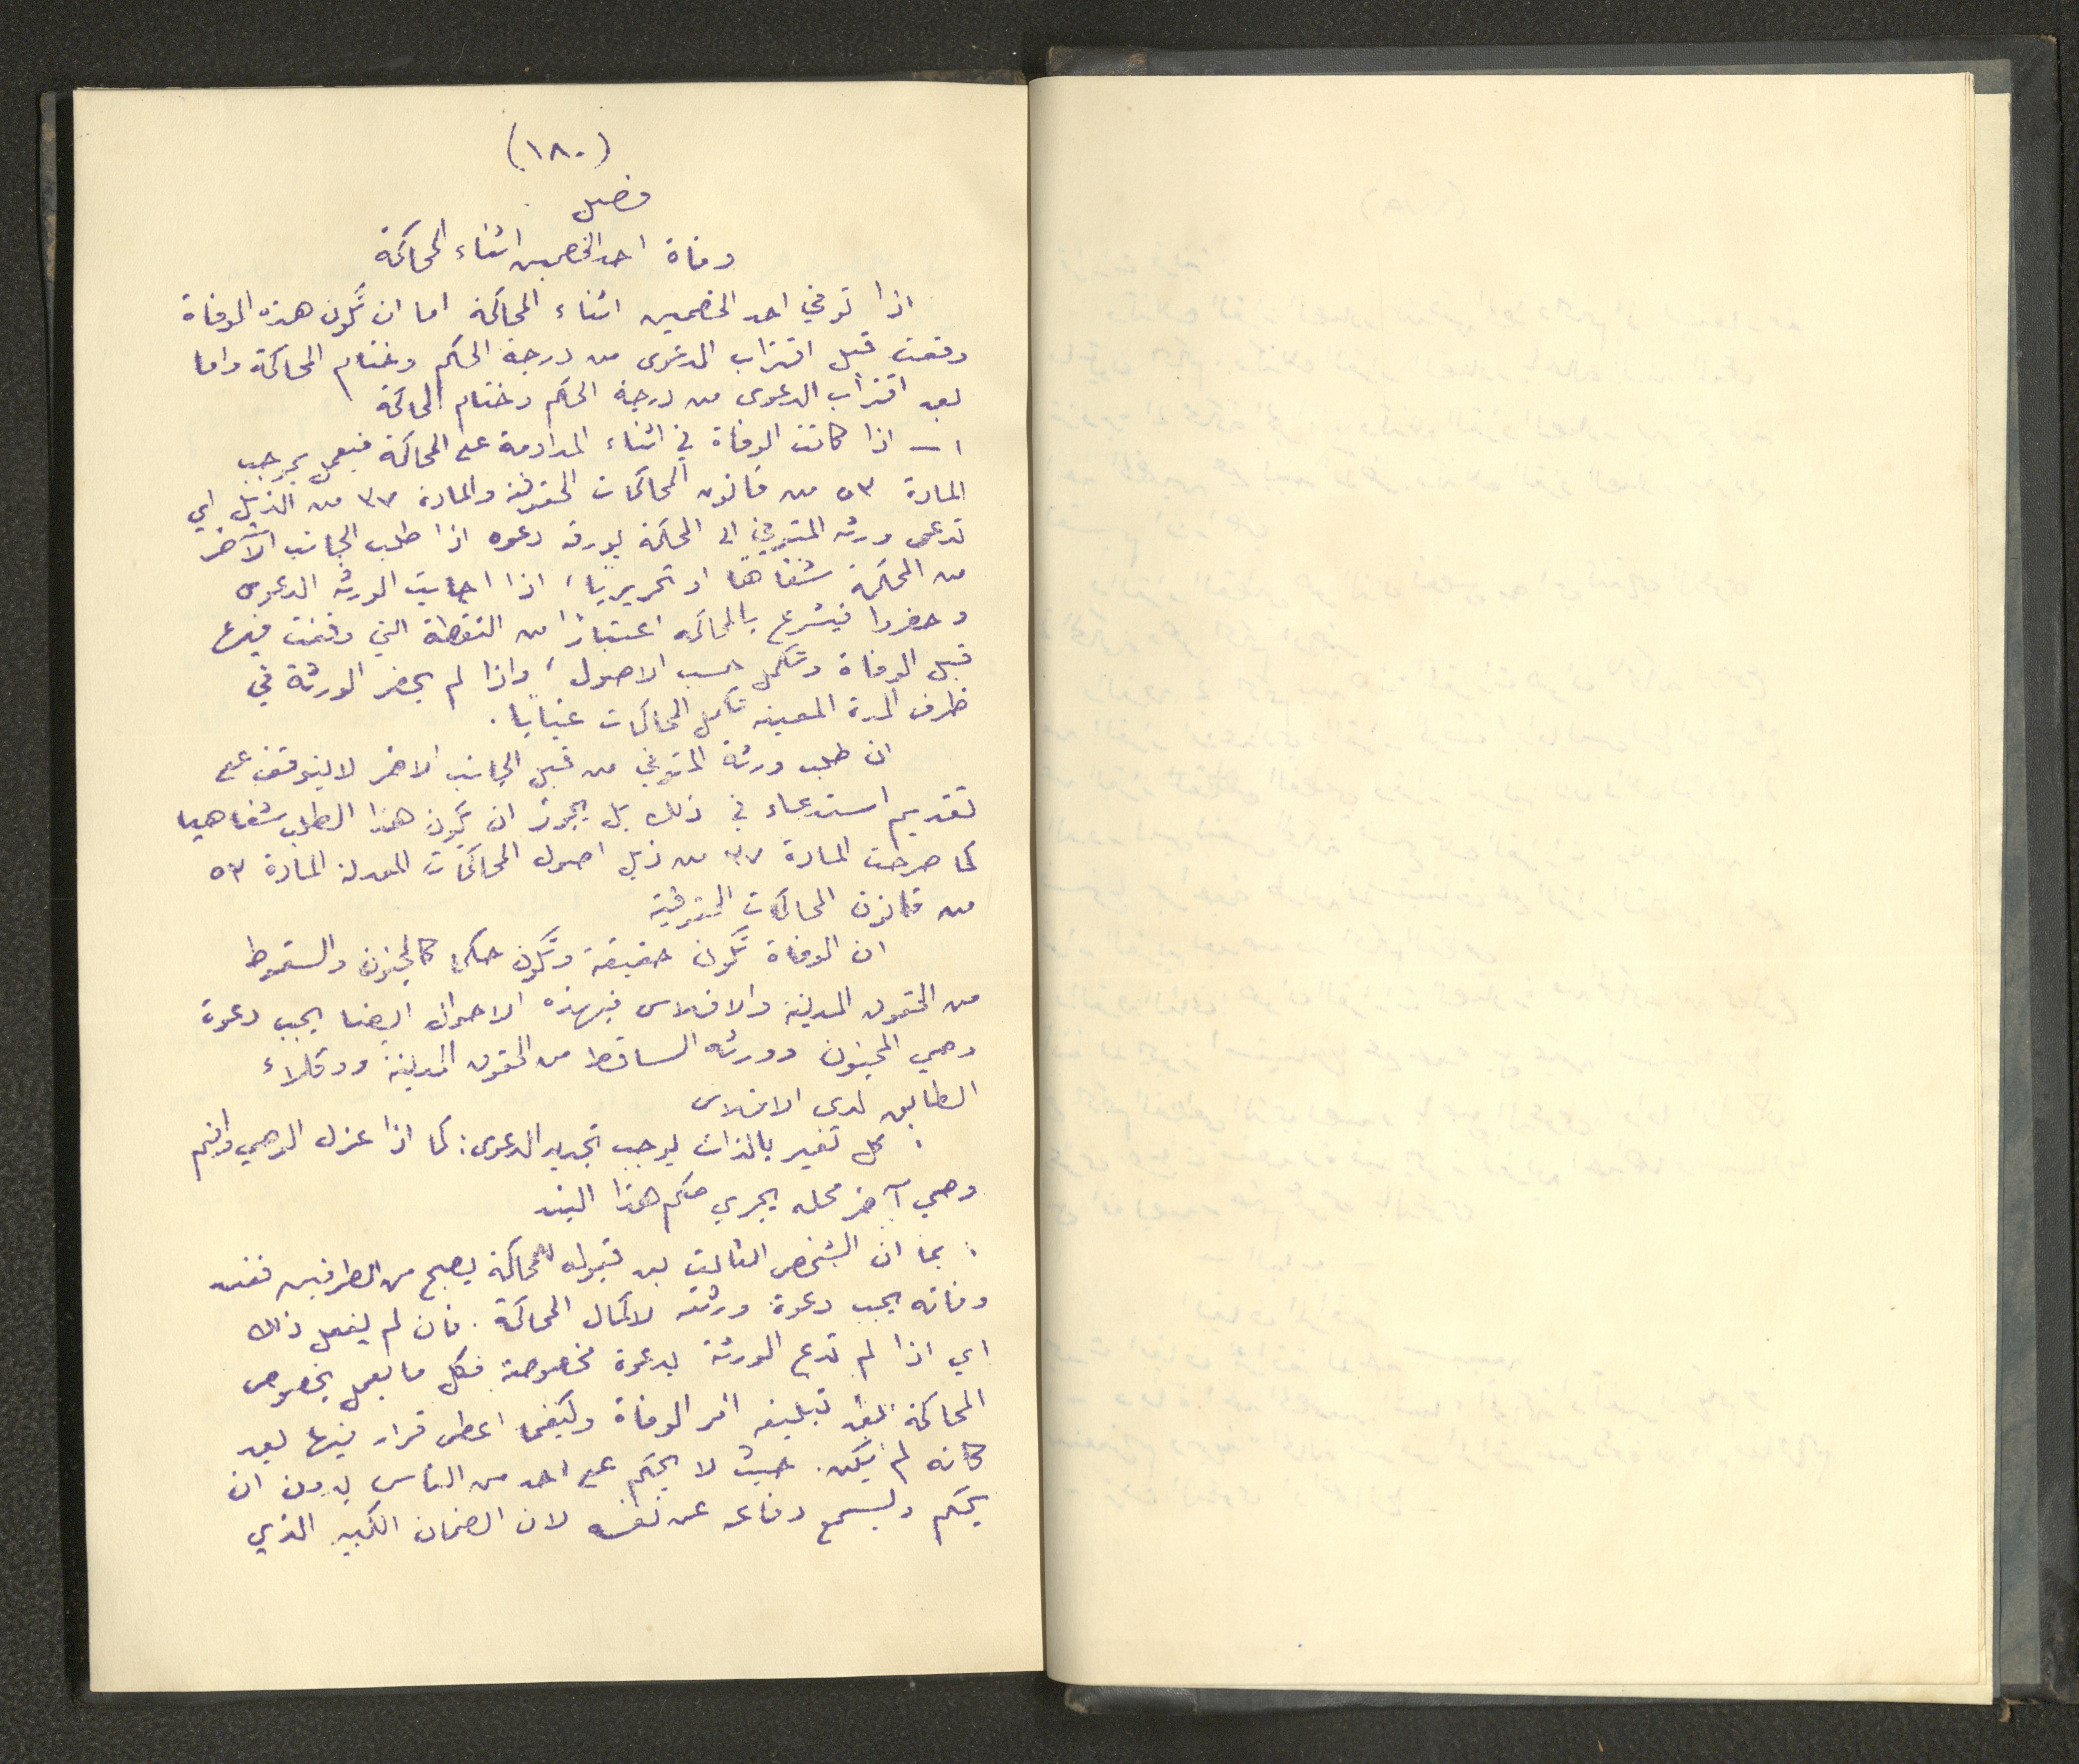 (١٨٠)
فصل
وفاة احد الخصمين اثناء المحاكمة
اذا توفي احد الخصمين اثناء المحاكمة اما ان تكون هذه الوفاة
وقعت قبل اقتراب الدعوى من درجة الحكم وختام المحاكمة واما
بعد اقتراب الدعوى من درجة الحكم وختام المحاكمة
١ — اذا كانت الوفاة في اثناء المداومة على المحاكمة فيعمل بموجب
المادة ٥٣ من قانون المحاكمات الحقوقية والمادة ٣٧ من الذيل اي
تدعى ورثه المتوفي الى المحكمة بورقة دعوه اذا طلب الجانب الآخر
من المحكمة شفاها او تحريريا، اذا اجابت الورثه الدعوى
وحضروا فيشرع بالمحاكمه اعتبارًا من النقطة التي وقفت فيها
قبل الوفاة وتكمل حسب الاصول، واذا لم يحضر الورثة في
ظرف المدة المعينه تكمل المحاكمات غيابيا.
ان طلب ورثة المتوفي من قبل الجانب الاخر لا يتوقف على
تقديم استدعاء في ذلك بل يجوز ان يكون هذا الطلب شفاهيا
كما صرحت المادة ٣٧ من ذيل اصول المحاكمات المعدلة المادة ٥٣
من قانون المحاكمات الحقوقية
ان الوفاة تكون حقيقة وتكون حكما كالجنون والسقوط
من الحقوق المدنية والافلاس فبهذه الاحوال ايضا يجب دعوة
وصي المجنون وورثه الساقط من الحقوق المدنية ووكلاء
الطابق لدى الافلاس
: كل تغير بالذات يوجب تجديد الدعوى: كما اذا عزل الوصي واقيم
وصي آخر محله يجري حكم هذا البند
: بما ان الشخص الثالث بعد قبوله للمحاكمة يصبح من الطرفين فعند
وفاته يجب دعوة ورثته لاكمال المحاكمة. فان لم يفعل ذلك
اي اذا لم تدع الورثة بدعوة مخصوصة فكل ما يعمل بخصوص
المحاكمة بعد تبليغ امر الوفاة وكيفما اعطى قرار فيها يعد
كانه لم يكن. حيث لا يحكم على احد من الناس بدون ان
يحكم ويسمع دفاعه عن نفسه لان الضمان الكبير الذي